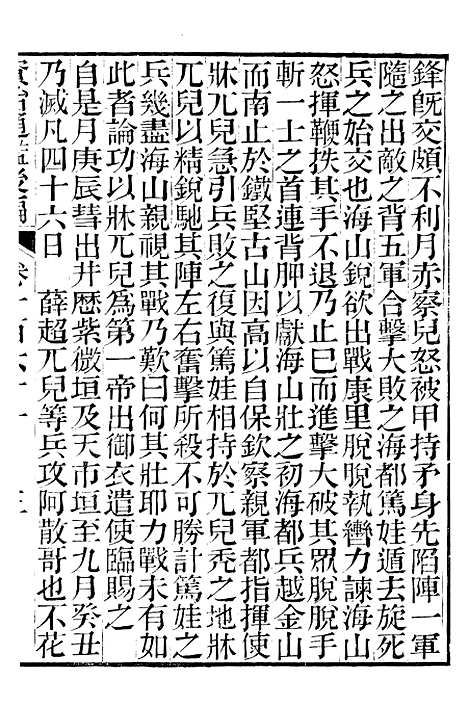 鋒旣交頗不利月赤察兒怒被甲持矛身先陷陣一軍
隨之出敵之背五軍合擊大敗之海都篤娃遁去旋死
兵之始交也海山銳欲出戰康里脫脫執轡力諫海山
怒揮鞭抶其手不退乃止已而進擊大破其眾脫脫手
斬一士之首連背胛以獻海山壯之初海都兵越金山
而南止於鐵堅古山因高以自保欽察親軍都指揮使
牀兀兒急引兵敗之復與篤娃相持於兀兒禿之地牀
兀兒以精銳馳其陣左右奮擊所殺不可勝計篤娃之
兵幾盡海山親視其戰乃歎曰何其壯耶力戰未有如
此者論功以牀兀兒爲第一帝出御衣遣使臨賜之
自是月庚辰彗出井歷紫微垣及天市垣至九月癸丑
乃滅凡四十六日　薛超兀兒等兵攻阿散哥也不花
資治通鑑後編　卷一百六十一　三